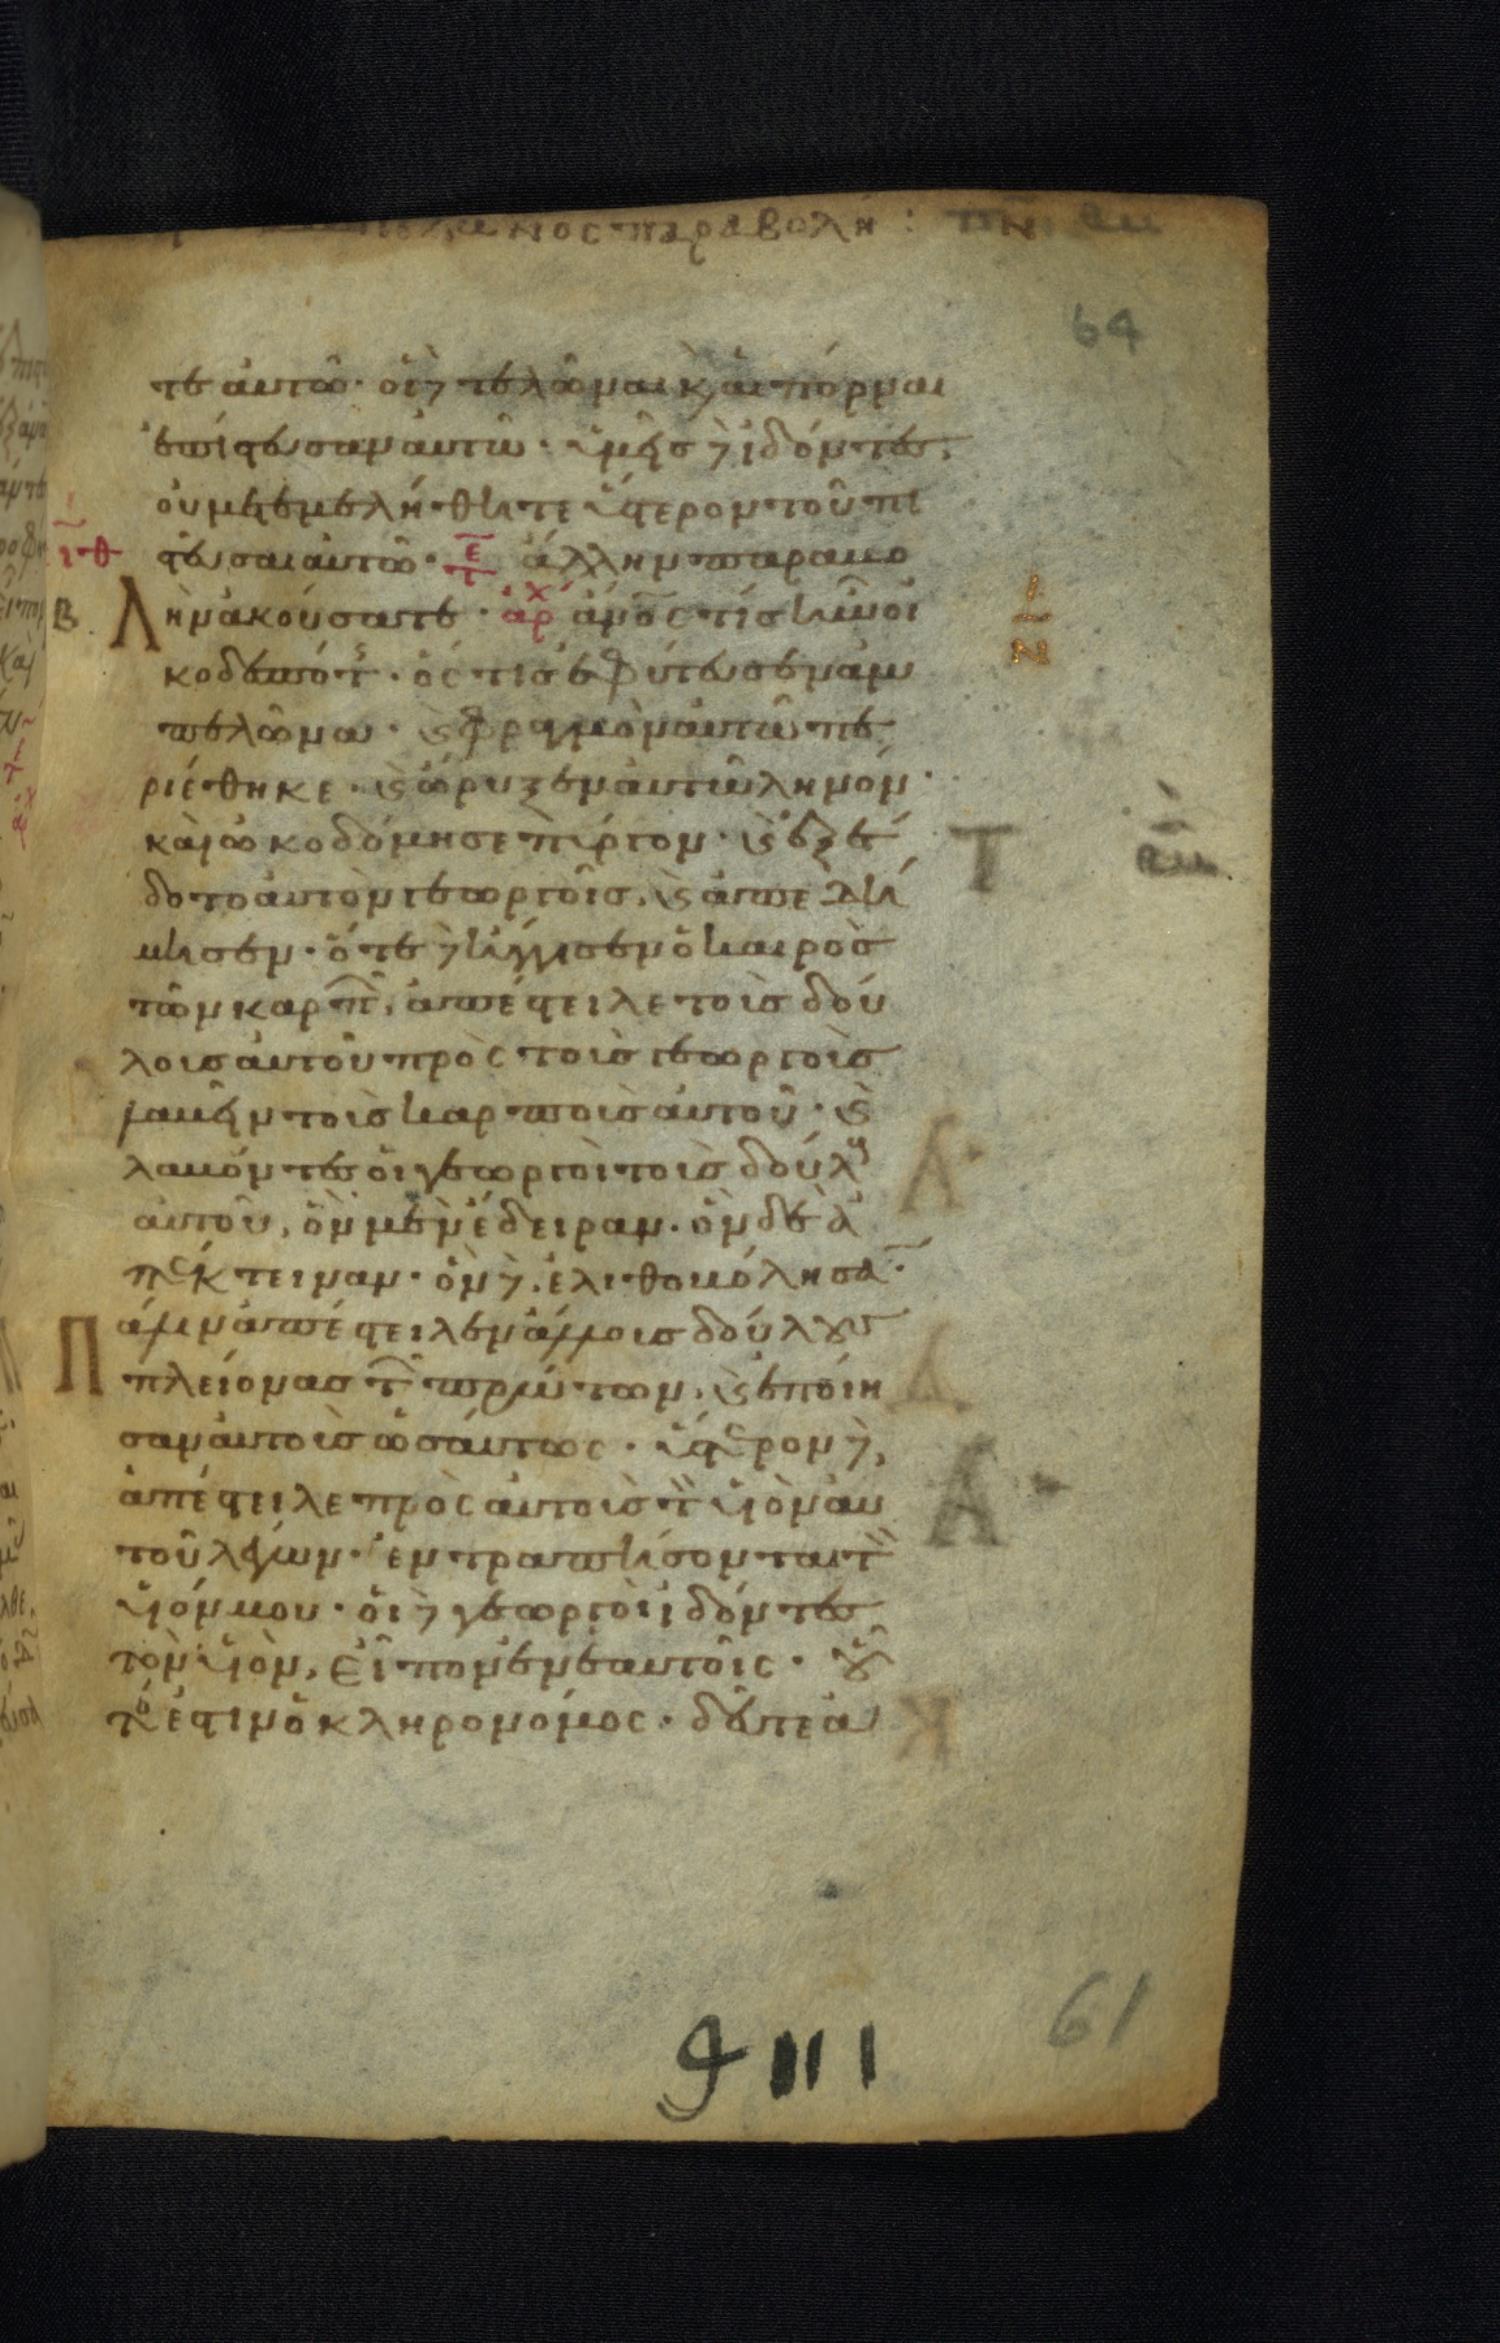 πελῶνος παραβολή :
64
τε αὐτῶ· οἱ δὲ τελῶναι κ αἱ πόρναι
ἐπίστευσαν αὐτῶ· ὑμεῖς δὲ ἰδόντες,
οὐ μετεμελήθητε ὕστερον τοῦ πι
ιθ στεῦσαι αὐτῶ· τε ἄλλην παραβο
β Λὴν ἀκούσατε· ἀρχ ἄνος τίς ἦν οἰ
κοδεσπότ· ὅστις ἐφύτευσεν ἀμ
πελῶνα· κ φραγμὸν αὐτῶ πε
ριέθηκε· κ ὤρυξεν αὐτῶ ληνόν·
καὶ ὠκοδόμησε πύργον· κ ἐξέ
δοτο αὐτὸν γεωργοῖς, κ ἀπεδή
μησεν· ὅτε δὲ ἤγγισεν ὁ καιρὸς
τῶν καρπ, ἀπέστειλε τοὺς δού
λους αὐτοῦ πρὸς τοὺς γεωργοὺς
λαβεῖν τοὺς καρποὺς αὐτοῦ· κ
λαβόντες οἱ γεωργοὶ τοὺς δούλ
αὐτοῦ, ὃν μὲν ἔδειραν· ὃν δὲ ἀ
πέκτειναν· ὃν δὲ ἐλιθοβόλησα
Πάλιν ἀπέστειλεν ἄλλους δούλους
πλείονας τ πρώτων, κ ἐποίη
σαν αὐτοῖς ὡσαύτως· ὕστερον δὲ,
ἀπέστειλε πρὸς αὐτοὺς τ υἱὸν αὐ
τοῦ λέγων· ἐντραπήσονται τ
υἱόν μου· οἱ δὲ γεωργοὶ ἰδόντες
τὸν υἱὸν, εἶπον ἐν ἑαυτοῖς· οὗ
τό ἐστιν ὁ κληρονόμος· δεῦτε ἀ
61